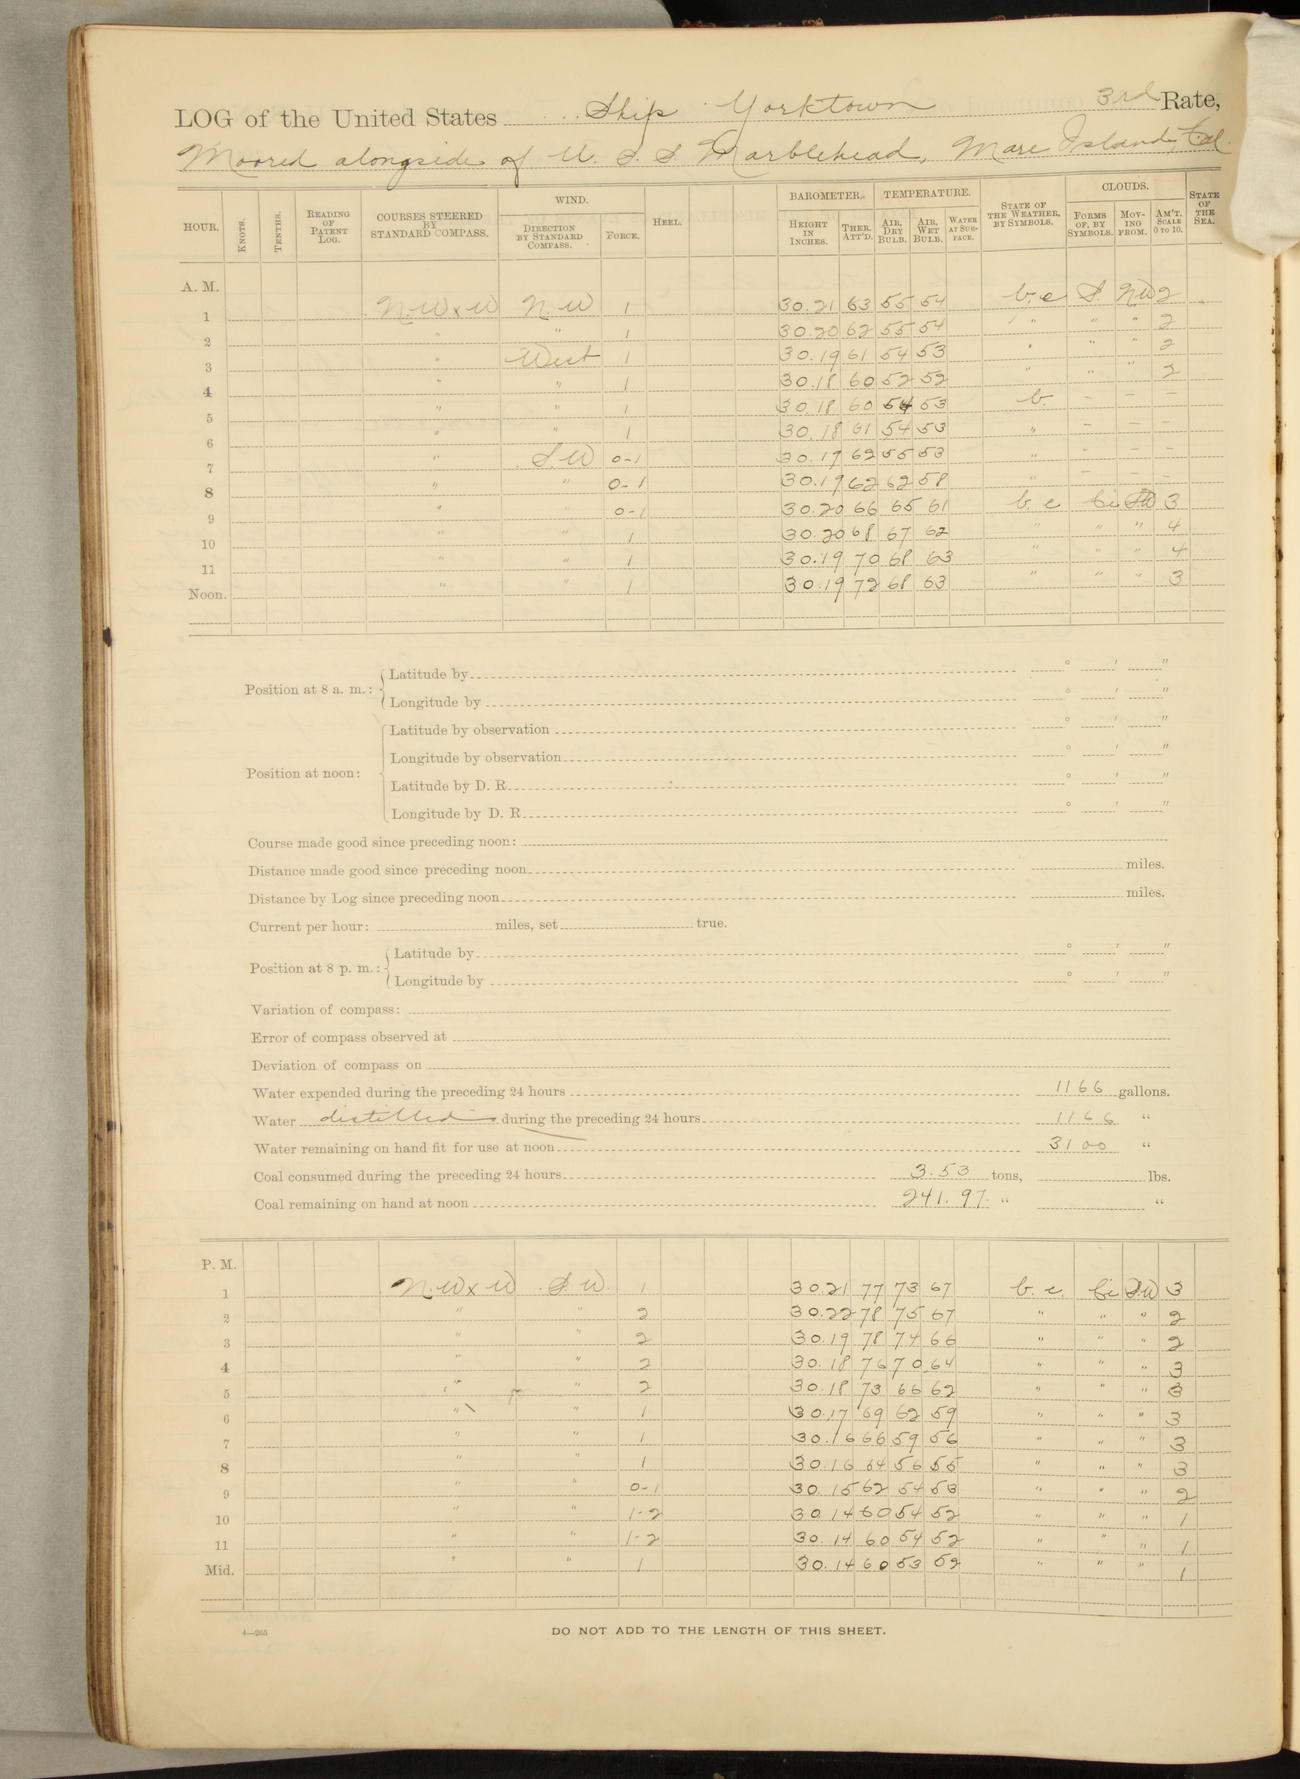 LOG of the United States Ship Yorktown 3rd Rate,
Moored alongside of U. S. S. Marblehead, Mare Island, Cal.
HOUR. KNOTS. TENTHS. READING OF PATENT LOG. COURSES STEERED BY STANDARD COMPASS. WIND. DIRECTION BY STANDARD COMPASS. FORCE. HEEL. BAROMETER. HEIGHT IN INCHES. THER. ATT'D. TEMPERATURE. AIR, DRY BULB. AIR, WET BULB. WATER AT SURFACE. STATE OF THE WEATHER, BY SYMBOLS. CLOUDS. FORMS OF, BY SYMBOLS. MOVING FROM. AM'T. SCALE 0 TO 10. STATE OF THE SEA.
A. M.
1 N.W x W N.W 1 30.21 63 55 54 b.c S. NW 2
2 " " 1 30.20 62 55 54 " " " 2
3 " West 1 30.19 61 54 53 " " " 2
4 " " 1 30.18 60 52 52 " " " 2
5 " " 1 30.18 60 54 53 b. - - -
6 " " 1 30.18 61 54 53 " - - -
7 " S.W 0-1 30.19 62 55 53 " - - -
8 " " 0-1 30.19 62 62 58 " - - -
9 " " 0-1 30.20 66 65 61 b. c. Ci SW 3
10 " " 1 30.20 68 67 62 " " " 4
11 " " 1 30.19 70 68 63 " " " 4
Noon. " " 1 30.19 72 68 63 " " " 3
Position at 8 a. m.: Latitude by ° ' "
Longitude by ° ' "
Position at noon: Latitude by observation ° ' "
Longitude by observation ° ' "
Latitude by D. R. ° ' "
Longitude by D. R. ° ' "
Course made good since preceding noon:
Distance made good since preceding noon miles.
Distance by Log since preceding noon miles.
Current per hour: miles, set true.
Position at 8 p. m.: Latitude by ° ' "
Longitude by ° ' "
Variation of compass:
Error of compass observed at
Deviation of compass on
Water expended during the preceding 24 hours 1166 gallons.
Water distilled during the preceding 24 hours 1166 "
Water remaining on hand fit for use at noon 3100 "
Coal consumed during the preceding 24 hours 3.53 tons, lbs.
Coal remaining on hand at noon 241.97 " "
P. M.
1 N.W x W S.W. 1 30.21 77 73 67 b. c. Ci SW 3
2 " " 2 30.22 78 75 67 " " " 2
3 " " 2 30.19 78 74 66 " " " 2
4 " " 2 30.18 76 70 64 " " " 3
5 " " 2 30.18 73 66 62 " " " 3
6 " " 1 30.17 69 62 59 " " " 3
7 " " 1 30.16 66 59 56 " " " 3
8 " " 1 30.16 64 56 55 " " " 3
9 " " 0-1 30.15 62 54 53 " " " 2
10 " " 1-2 30.14 60 54 52 " " " 1
11 " " 1-2 30.14 60 54 52 " " " 1
Mid. " " 1 30.14 60 53 52 " " " 1
4—265
DO NOT ADD TO THE LENGTH OF THIS SHEET.